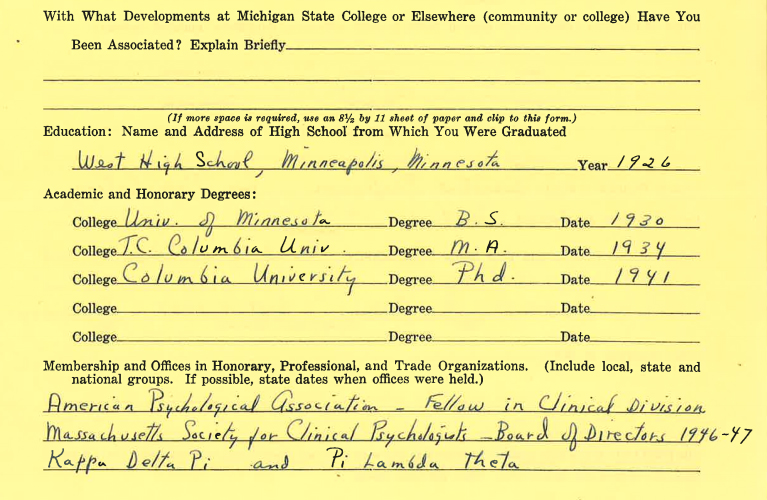 With What Developments at Michigan State College or Elsewhere (community or college) Have You
Been Associated? Explain Briefly
(If more space is required, use an 8½ by 11 sheet of paper and clip to this form.)
Education: Name and Address of High School from Which You Were Graduated
West High School, Minneapolis, Minnesota Year 1926
Academic and Honorary Degrees:
College Univ. of Minnesota Degree B.S. Date 1930
College T.C. Columbia Univ. Degree M.A. Date 1934
College Columbia University Degree Phd. Date 1941
College Degree Date
College Degree Date
Membership and Offices in Honorary, Professional, and Trade Organizations. (Include local, state and
national groups. If possible, state dates when offices were held.)
American Psychological Association – Fellow in Clinical Division
Massachusetts Society for Clinical Psychologists – Board of Directors 1946-47
Kappa Delta Pi and Pi Lambda Theta